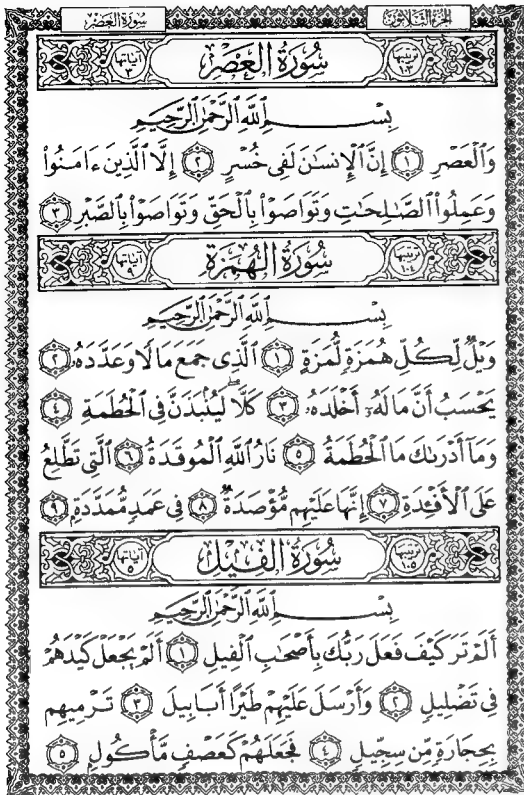 سورة العصر الجزء الثلاثون
آياتها ٣ سُورَةُ العَصْرِ ترتيبها ١٠٣
بِسْمِ ٱللَّهِ ٱلرَّحْمَٰنِ ٱلرَّحِيمِ
وَٱلْعَصْرِ ١ إِنَّ ٱلْإِنسَٰنَ لَفِى خُسْرٍ ٢ إِلَّا ٱلَّذِينَ ءَامَنُوا۟
وَعَمِلُوا۟ ٱلصَّٰلِحَٰتِ وَتَوَاصَوْا۟ بِٱلْحَقِّ وَتَوَاصَوْا۟ بِٱلصَّبْرِ ٣
آياتها ٩ سُورَةُ الهُمَزَةِ ترتيبها ١٠٤
بِسْمِ ٱللَّهِ ٱلرَّحْمَٰنِ ٱلرَّحِيمِ
وَيْلٌ لِّكُلِّ هُمَزَةٍ لُّمَزَةٍ ١ ٱلَّذِى جَمَعَ مَالًا وَعَدَّدَهُۥ ٢
يَحْسَبُ أَنَّ مَالَهُۥٓ أَخْلَدَهُۥ ٣ كَلَّا ۖ لَيُنۢبَذَنَّ فِى ٱلْحُطَمَةِ ٤
وَمَآ أَدْرَىٰكَ مَا ٱلْحُطَمَةُ ٥ نَارُ ٱللَّهِ ٱلْمُوقَدَةُ ٦ ٱلَّتِى تَطَّلِعُ
عَلَى ٱلْأَفْـِٔدَةِ ٧ إِنَّهَا عَلَيْهِم مُّؤْصَدَةٌ ٨ فِى عَمَدٍ مُّمَدَّدَةٍۭ ٩
آياتها ٥ سُورَةُ الفِيلِ ترتيبها ١٠٥
بِسْمِ ٱللَّهِ ٱلرَّحْمَٰنِ ٱلرَّحِيمِ
أَلَمْ تَرَ كَيْفَ فَعَلَ رَبُّكَ بِأَصْحَٰبِ ٱلْفِيلِ ١ أَلَمْ يَجْعَلْ كَيْدَهُمْ
فِى تَضْلِيلٍ ٢ وَأَرْسَلَ عَلَيْهِمْ طَيْرًا أَبَابِيلَ ٣ تَرْمِيهِم
بِحِجَارَةٍ مِّن سِجِّيلٍ ٤ فَجَعَلَهُمْ كَعَصْفٍ مَّأْكُولٍۭ ٥